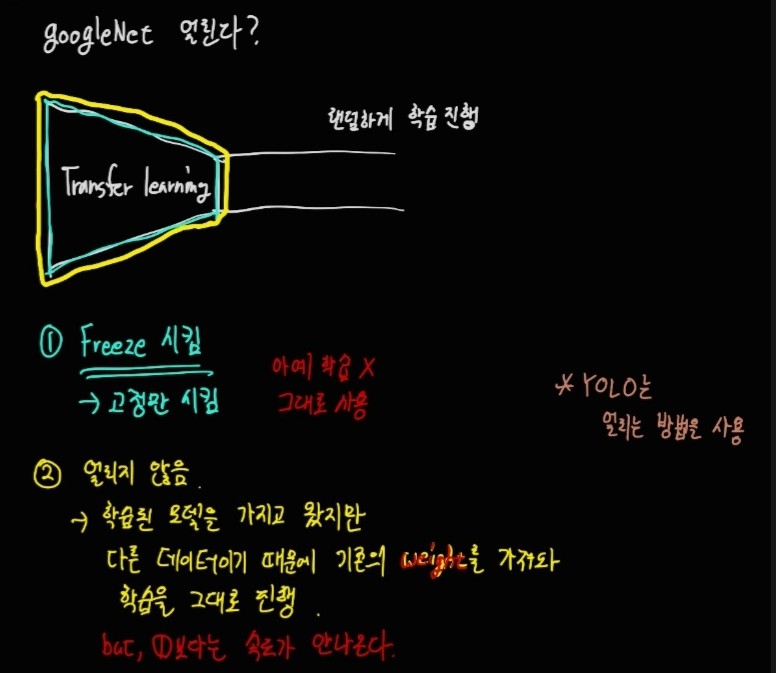 googleNet 얼린다?
랜덤하게 학습 진행
Transfer learning
① Freeze 시킴
→ 고정만 시킴
아예 학습 X
그대로 사용
* YOLO는
얼리는 방법을 사용
② 얼리지 않음.
→ 학습된 모델을 가지고 왔지만
다른 데이터이기 때문에 기존의 weight를 가져와
학습을 그대로 진행.
but, ①보다는 속도가 안나온다.